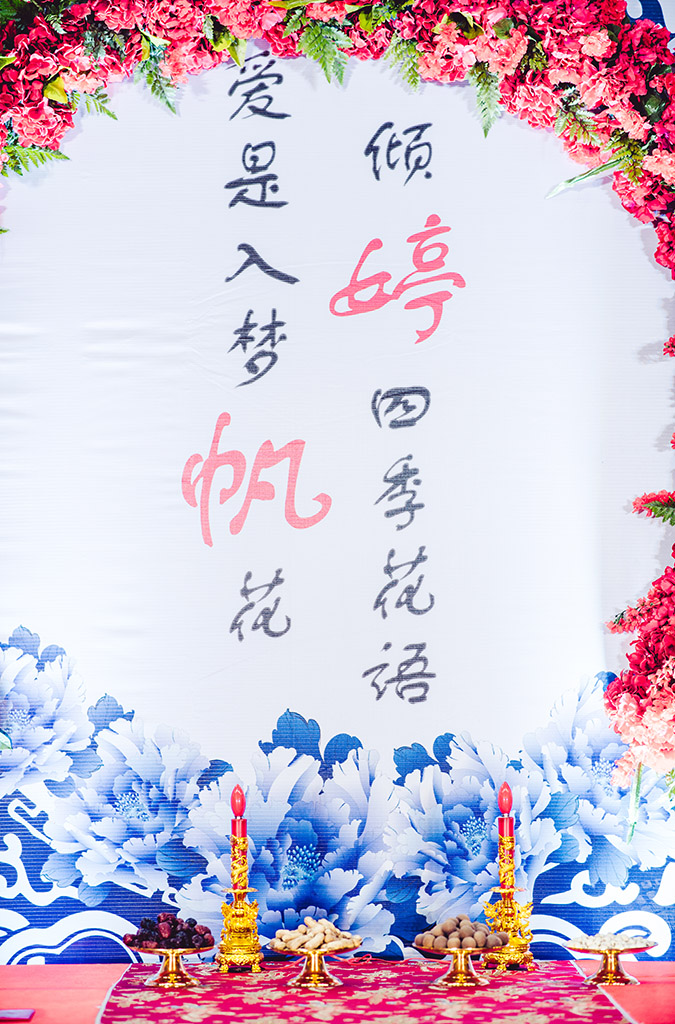 倾婷四季花语
爱是入梦帆花